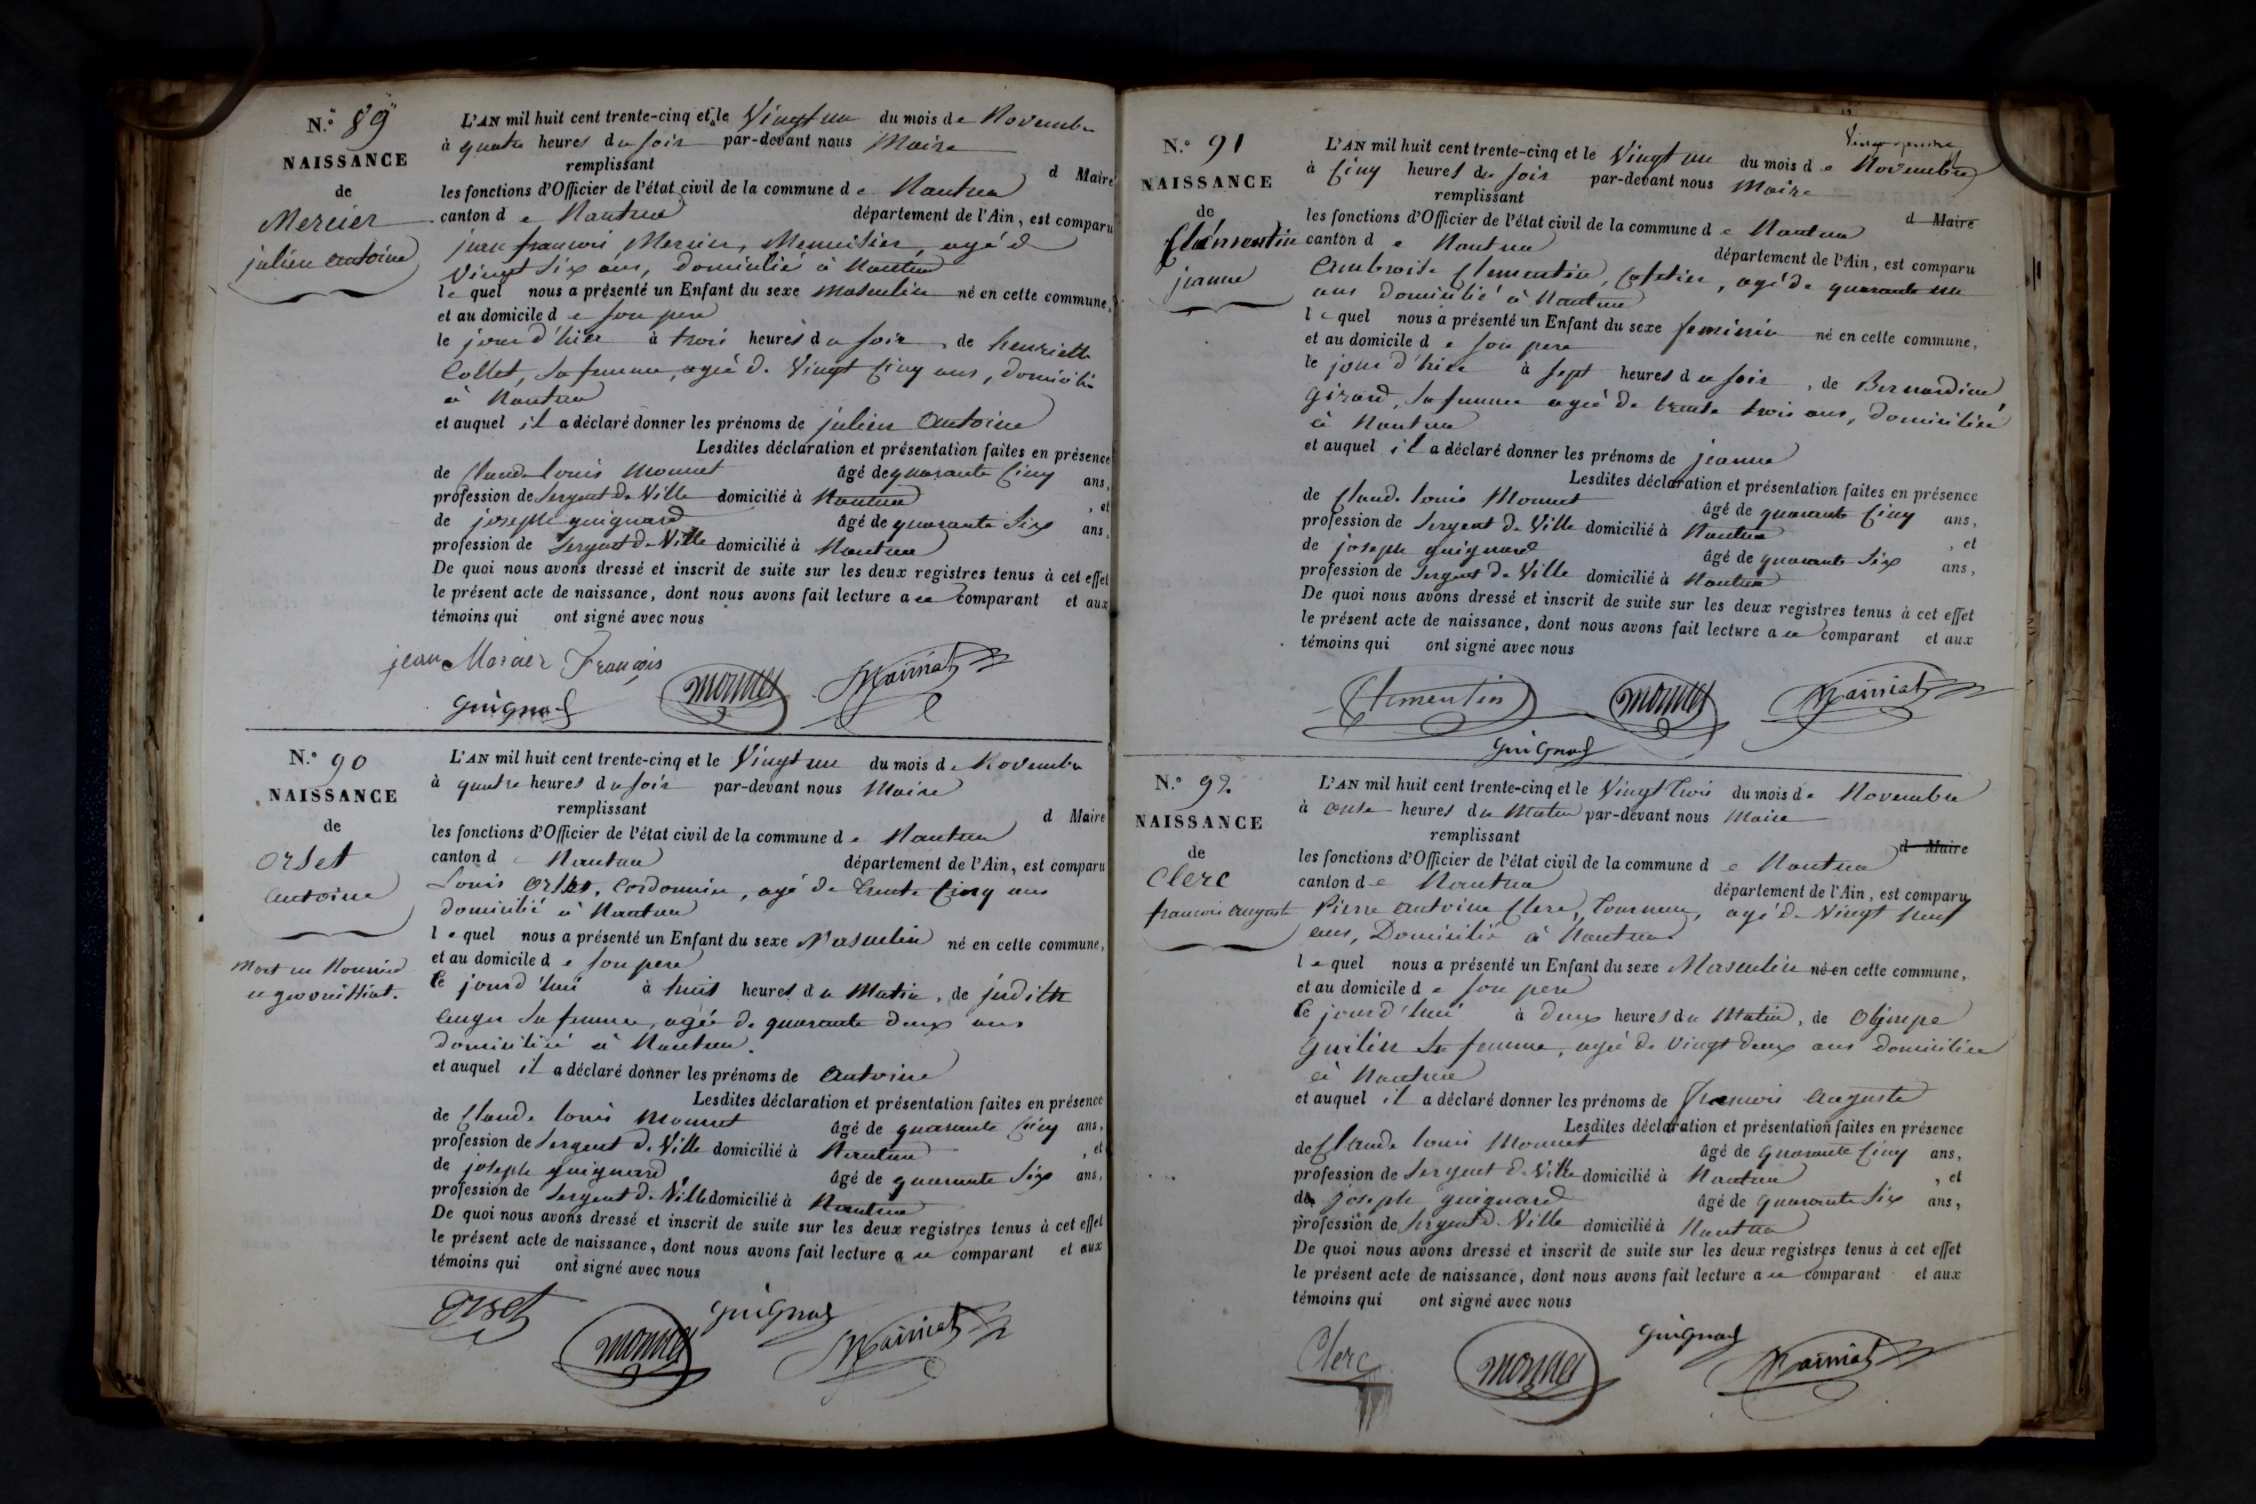 N.° 89
NAISSANCE
de
Mercier
julien antoine
L'AN mil huit cent trente-cinq et le Vingt un du mois de Novembre
à quatre heures du soir par-devant nous Maire
remplissant d Maire
les fonctions d'Officier de l'état civil de la commune de Nantua
canton de Nantua département de l'Ain, est comparu
jean francois Mercier, Menuisier, agé de
Vingt Six ans, domicilié à Nantua
lequel nous a présenté un Enfant du sexe masculin né en cette commune,
et au domicile de son pere
le jour d'hier à trois heures du soir, de henriette
Collet, sa femme, agée de Vingt Cinq ans, domicilié
à Nantua
et auquel il a déclaré donner les prénoms de julien Antoine
Lesdites déclaration et présentation faites en présence
de Claude Louis Monnet âgé de quarante Cinq ans,
profession de Sergent de Ville domicilié à Nantua, et
de joseph guignard âgé de quarante Six ans,
profession de Sergent de Ville domicilié à Nantua
De quoi nous avons dressé et inscrit de suite sur les deux registres tenus à cet effet
le présent acte de naissance, dont nous avons fait lecture au comparant et aux
témoins qui ont signé avec nous
jean Mercier François
guignard monnet
N.° 90
NAISSANCE
de
Orset
antoine
Mort en Nourrice
L'AN mil huit cent trente-cinq et le Vingt un du mois de Novembre
à quatre heures du soir par-devant nous Maire
remplissant d Maire
les fonctions d'Officier de l'état civil de la commune de Nantua
canton de Nantua département de l'Ain, est comparu
Louis Orset, Cordonnier, agé de trente Cinq ans
domicilié à Nantua
lequel nous a présenté un Enfant du sexe Masculin né en cette commune,
et au domicile de son pere
Ce jourd'hui à huit heures du Matin, de judith
sa femme, agée de quarante deux ans
domiciliée à Nantua.
et auquel il a déclaré donner les prénoms de Antoine
Lesdites déclaration et présentation faites en présence
de Claude Louis Monnet âgé de quarante Cinq ans,
profession de Sergent de Ville domicilié à Nantua, et
de joseph guignard âgé de quarante Six ans,
profession de Sergent de Ville domicilié à Nantua
De quoi nous avons dressé et inscrit de suite sur les deux registres tenus à cet effet
le présent acte de naissance, dont nous avons fait lecture au comparant et aux
témoins qui ont signé avec nous
Orset monnet guignard
N.° 91
NAISSANCE
de
Clémentin
jeanne
L'AN mil huit cent trente-cinq et le Vingt un du mois de Novembre
à Cinq heures du soir par-devant nous Maire
remplissant d Maire
les fonctions d'Officier de l'état civil de la commune de Nantua
canton de Nantua département de l'Ain, est comparu
Ambroise Clementin, Cafetier, agé de quarante un
ans domicilié à Nantua
lequel nous a présenté un Enfant du sexe feminin né en cette commune,
et au domicile de son pere
le jour d'hier à sept heures du soir, de Bernardine
Girard, sa femme agée de trente trois ans, domiciliée
à Nantua
et auquel il a déclaré donner les prénoms de jeanne
Lesdites déclaration et présentation faites en présence
de Claude Louis Monnet âgé de quarante Cinq ans,
profession de Sergent de Ville domicilié à Nantua, et
de joseph guignard âgé de quarante Six ans,
profession de Sergent de Ville domicilié à Nantua
De quoi nous avons dressé et inscrit de suite sur les deux registres tenus à cet effet
le présent acte de naissance, dont nous avons fait lecture au comparant et aux
témoins qui ont signé avec nous
Clementin monnet
guignard
N.° 92
NAISSANCE
de
Clerc
francois auguste
L'AN mil huit cent trente-cinq et le Vingt trois du mois de Novembre
à onse heures du Matin par-devant nous Maire
remplissant d Maire
les fonctions d'Officier de l'état civil de la commune de Nantua
canton de Nantua département de l'Ain, est comparu
Pierre antoine Clerc, Tourneur, agé de Vingt neuf
ans, Domicilié à Nantua
lequel nous a présenté un Enfant du sexe Masculin né en cette commune,
et au domicile de son pere
Ce jourd'hui à deux heures du Matin, de Olimpe
sa femme, agée de Vingt deux ans domiciliée
à Nantua
et auquel il a déclaré donner les prénoms de francois Auguste
Lesdites déclaration et présentation faites en présence
de Claude Louis Monnet âgé de quarante Cinq ans,
profession de Sergent de Ville domicilié à Nantua, et
de joseph guignard âgé de quarante Six ans,
profession de Sergent de Ville domicilié à Nantua
De quoi nous avons dressé et inscrit de suite sur les deux registres tenus à cet effet
le présent acte de naissance, dont nous avons fait lecture au comparant et aux
témoins qui ont signé avec nous
Clerc monnet guignard